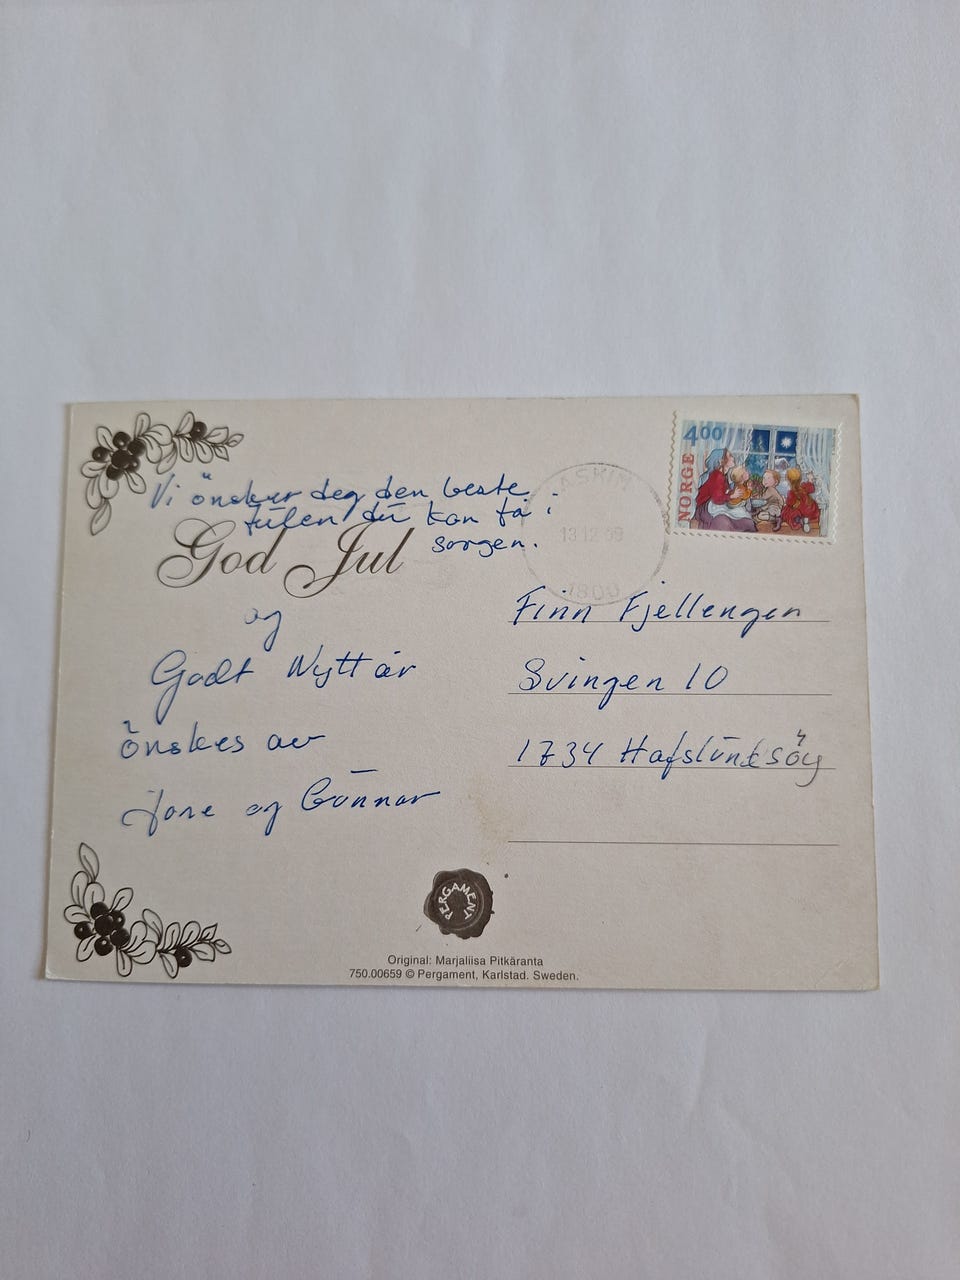 Vi önsker deg den beste
julen du kan få i
sorgen.
God Jul
og
Godt Nytt år
önskes av
Jane og Gunnar
4.00
NORGE
ASKIM
13 12 99
1800
Finn Fjellengen
Svingen 10
1734 Hafslundsöy
PERGAMENT
Original: Marjaliisa Pitkäranta
750.00659 © Pergament, Karlstad. Sweden.